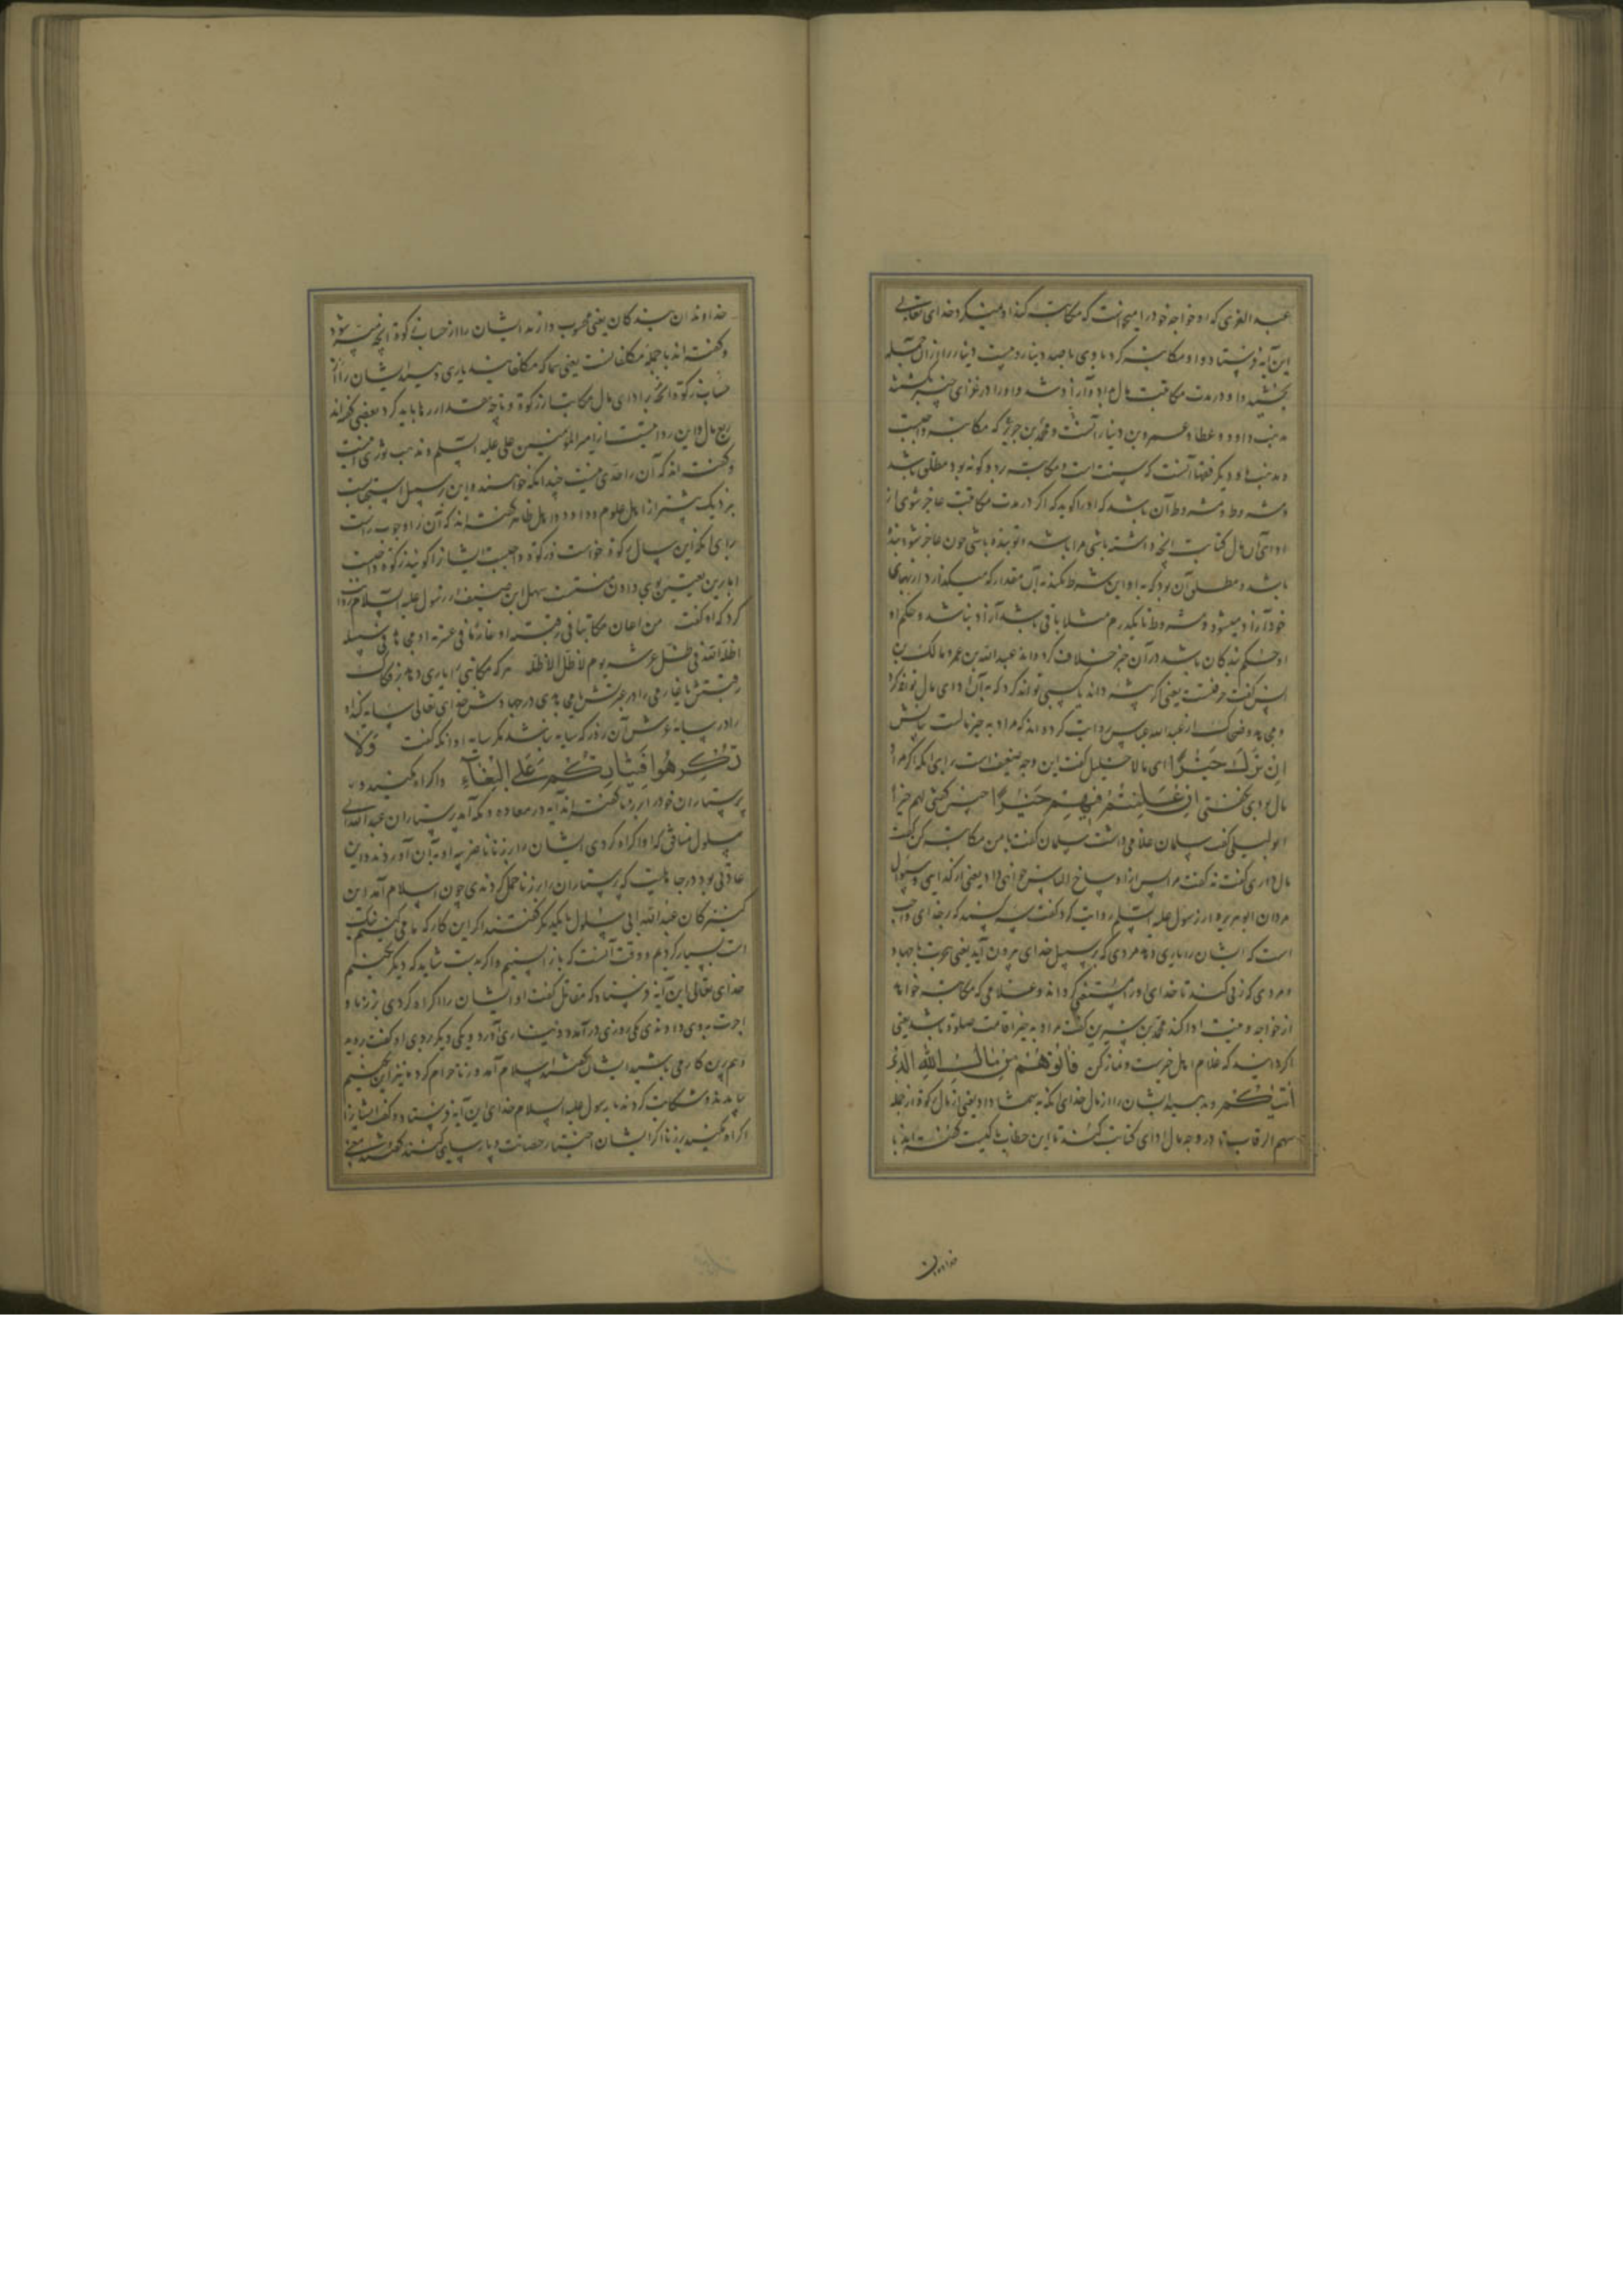 عبد العزی که او خواجه خود را میخواست که مکاتبت کند او نمیکرد خدای تعالی
این آیه فرستاد و او مکاتبه کرد با وی با صد دینار و بیست دینار را از آن جمله
بخشید و او در مدت مکاتبت مال بداد و آزاد شد و او را در غزای حنین بکشتند
مذهب داود و عطا و عمرو بن دینار آنست و محمد بن جریر که مکاتبه واجبست
و مذهب ما و دیگر فقها آنست که سنت است و مکاتبه بر دو گونه بود مطلق باشد
و مشروط و مشروط آن باشد که او را گوید که اگر در مدت مکاتبت عاجز شوی از
ادای آن مال کتابت آنچه داشته باشی مرا باشد و تو بنده باشی چون عاجز شود بنده
باشد و مطلق آن بود که با او این شرط نکند به آن مقدار که میگذارد از بهای
خود آزاد میشود و مشروط تا یکدرم مثلا باقی باشد آزاد نباشد و حکم او
حکم بندگان باشد در آن خبر خلاف کرده اند عبد الله بن عمر و مالک بن
انس گفت حرفتست یعنی اگر پیشه داند یا کسبی تواند کرد که به آن ادای مال تواند کرد
ضحاک از عبد الله عباس روایت کرده اند که مراد به خیر مالست
ان ترک خیرا ای مالا خلیل گفت این وجه ضعیف است برای آنکه اگر مراد
مال بودی گفتی ان علمتم فیهم خیرا گفتی لهم خیرا
ابو لیلی گفت سلمان غلامی داشت سلمان گفت با من مکاتبه کن گفت
مال داری گفت نه گفت مرا پس از او ساخ الناس خواهی داد یعنی از گدایی و سوال
مردان ابو هریره از رسول علیه السلم روایت کرد گفت سه کسند که بر خدای واجب
است که ایشان را یاری دهد مردی که بر سبیل خدای بیرون آید یعنی بحرب یا جهاد
و مردی که زنی کند تا خدای او را مستغنی گرداند و غلامی که مکاتبه خواهد
از خواجه و نیت ادا کند محمد بن سیرین گفت مراد به خیر اقامت صلوة باشد یعنی
اگر دانید که غلام اهل خیرست و نماز کن فاتوهم من مال الله الذی
اتیکم و بدهید ایشان را از مال خدای آنکه به شما داد یعنی از مال زکوة از جمله
سهم الرقاب تا در وجه مال ادای کتابت کنند تا این خطاب با کیست گفته اند با
خداوندان
خداوندان بندگان یعنی محسوب دارند ایشان را از حساب زکوة آنچه میسر شود
و گفته اند با جمله مکلفانست یعنی شما که مکلفانید یاری دهید ایشان را از
حساب زکوة و آنچه برادای مال مکاتبت از زکوة و تا چه مقدار رها باید کرد بعضی گفته اند
ربع مال و این روایتست از امیر المومنین علی علیه السلم و مذهب ثوری اینست
و گفته اند که آن را حدی نیست چندانکه خواهند و این بر سبیل استحبابست
نزدیک بیشتر از اهل علوم و داود و اهل ظاهر گفته اند که آن از وجوب راست
برای آنکه این سال زکوة خواست و زکوة واجبست ایشان را گویند زکوة واجبست
اما برین تعیین بوی دادن سنتست سهل ابن حنیف از رسول علیه السلام روایت
کرد که او گفت من اعان مکاتبا فی رقبته او غازیا فی عسرته او مجاهدا فی سبیله
اظله الله فی ظل عرشه یوم لا ظل الا ظله هر که مکاتبی را یاری دهد بر فکاک
رقبتش یا غازی را در عسرتش یا مجاهدی در جهادش خدای تعالی سایه کند او
را در سایه عرش آن روز که سایه نباشد مگر سایه او آنکه گفت ولا
تکرهوا فتیاتکم علی البغاء و اکراه مکنید
پرستاران خود را بر زنا گفته اند آیه در معاذه و مسیکه آمد پرستاران عبد الله ابی
سلول منافق که او اکراه کردی ایشان را بر زنا تا ضریبه او به آن آوردند و این
عادتی بود در جاهلیت که پرستاران را بر زنا حمل کردندی چون اسلام آمد این
کنیزکان عبد الله ابی سلول با یکدیگر گفتند اگر این کار که ما می کنیم نیک
است بسیار کردیم و وقت آنست که باز ایستیم و اگر بدست شاید که دیگر نکنیم
خدای تعالی این آیه فرستاد که مقاتل گفت او ایشان را اکراه کردی بر زنا و
اجرت بدو دادندی یکی روزی درآمد و دیناری آورد و یکی دیگر بردی او گفت روید
و هم برین کار می باشید ایشان گفتند اسلام آمد و زنا حرام کرد ما نیز این نکنیم
بیامدند و شکایت کردند با رسول علیه السلام خدای این آیه فرستاد و گفت ایشان را
اکراه مکنید بر زنا اگر ایشان اختیار حصانت و پارسایی کنند گفتند